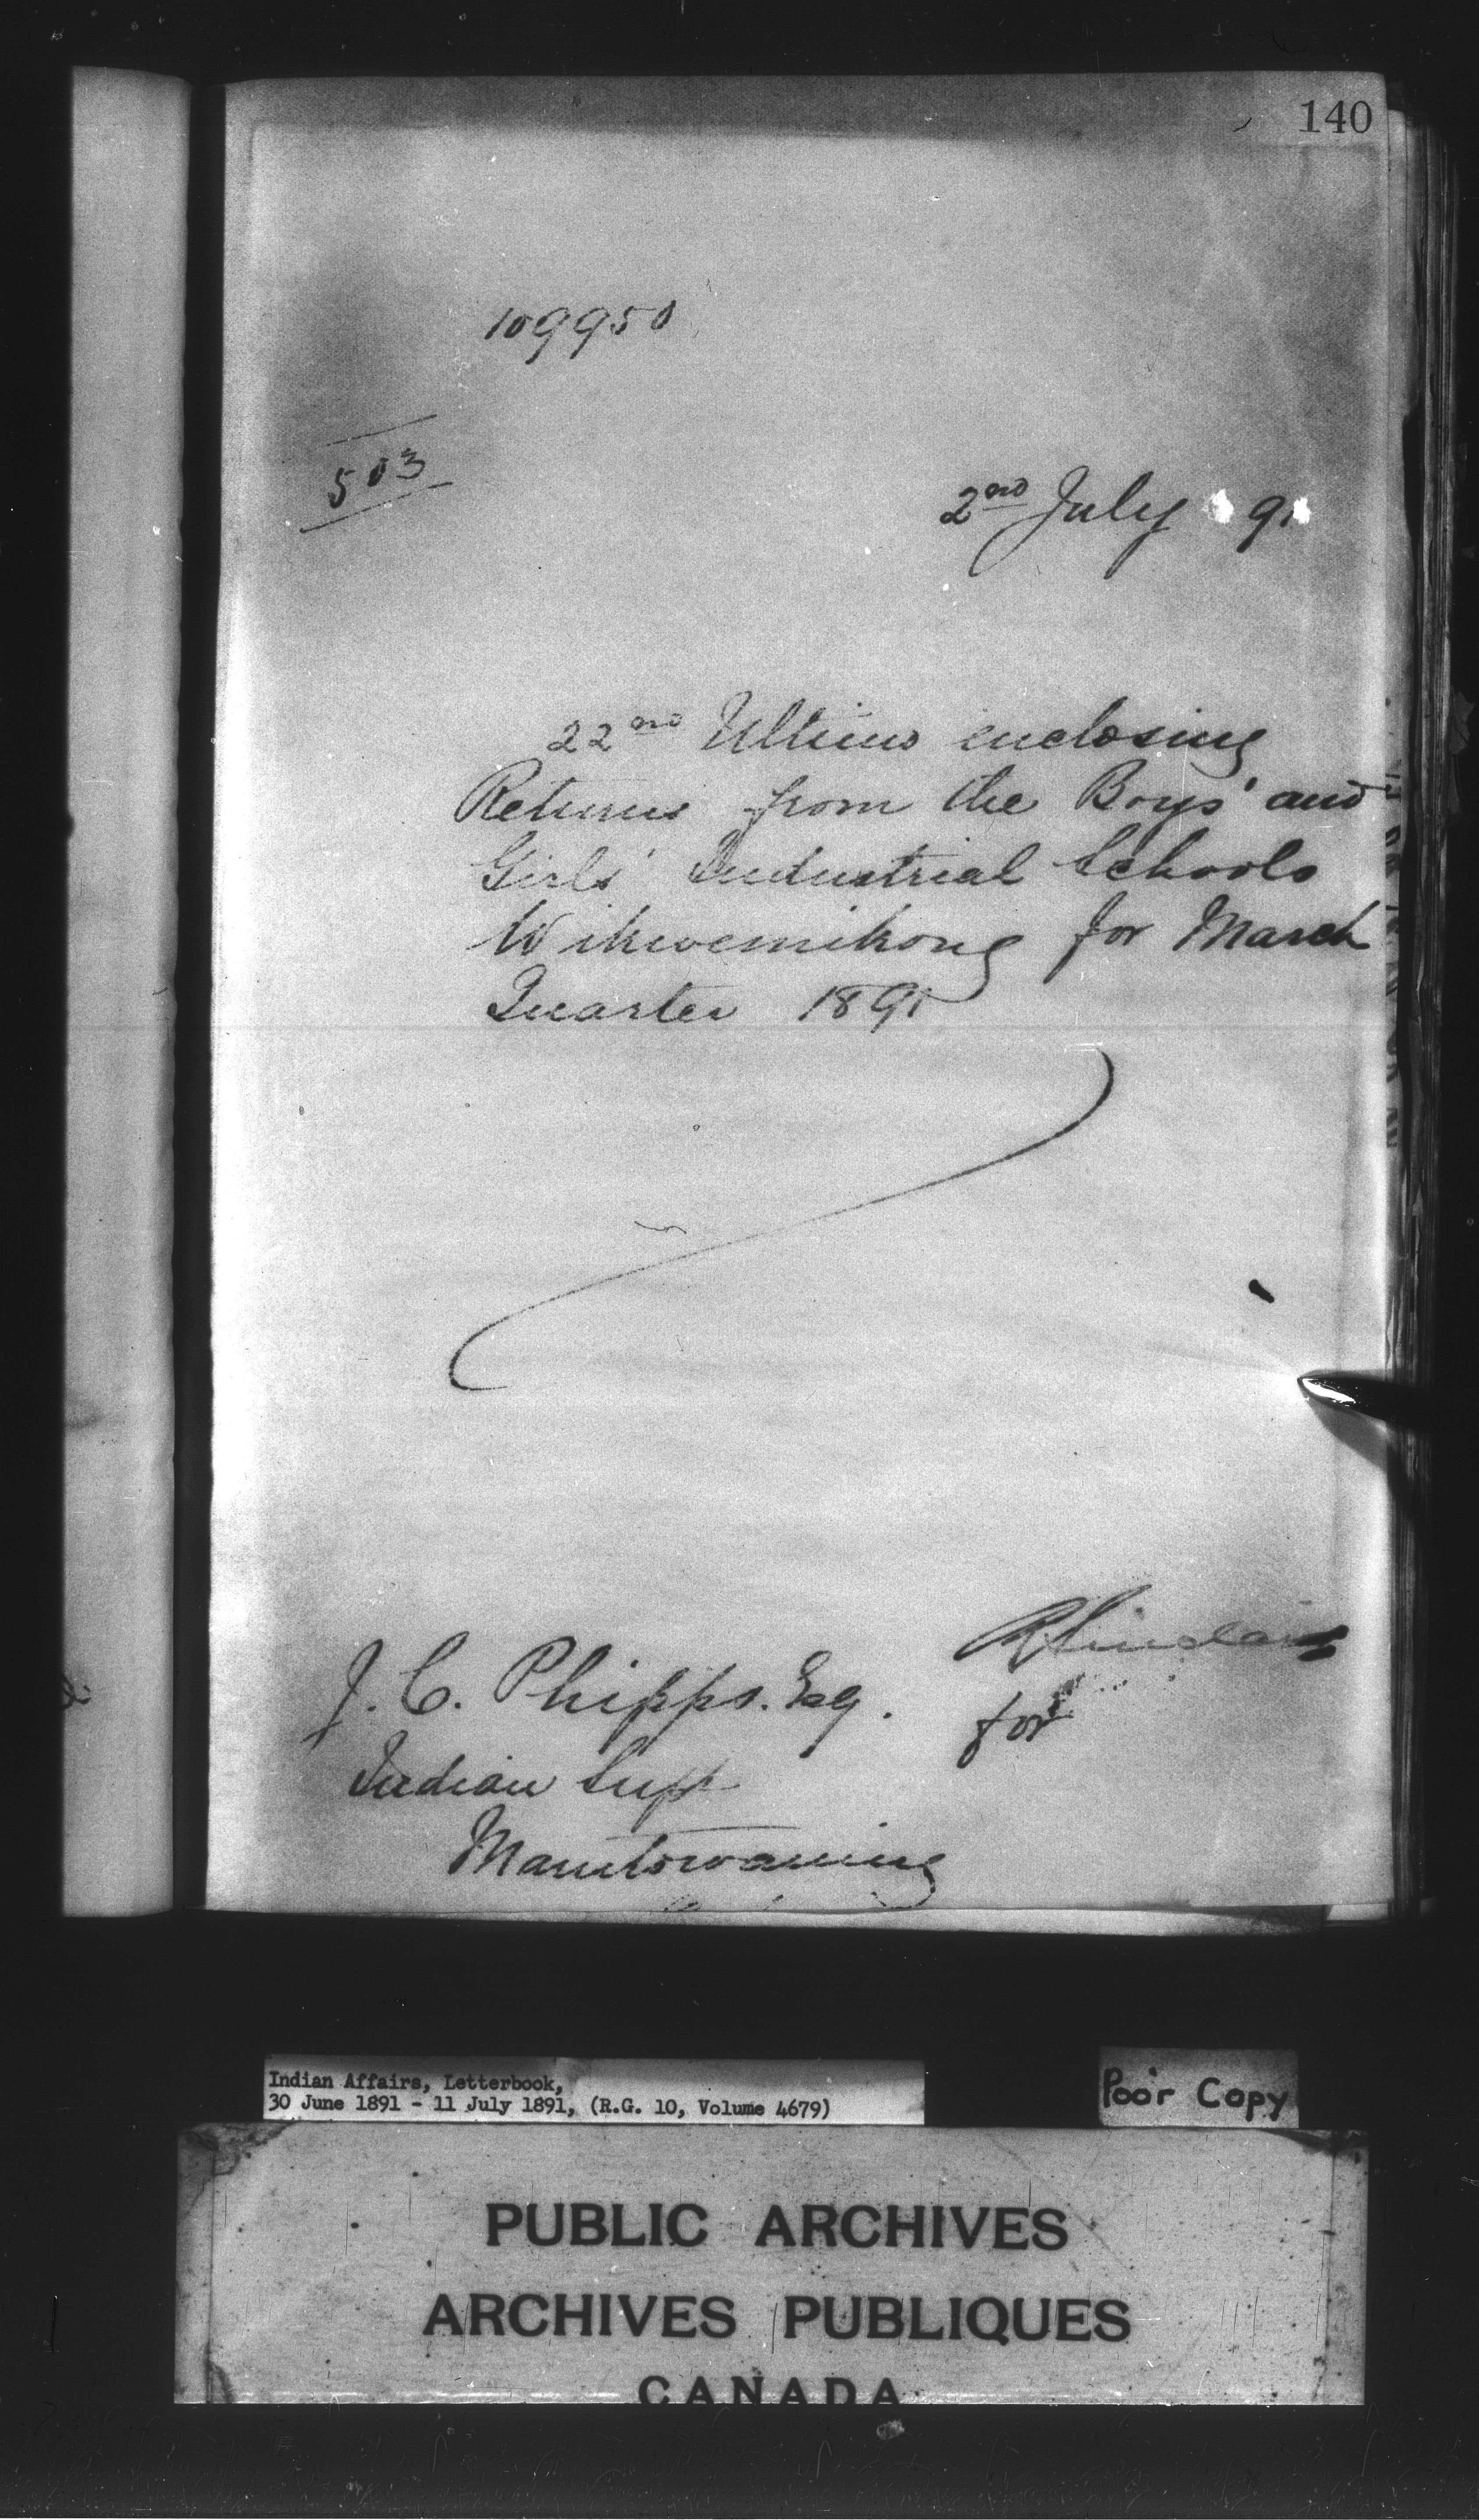 140
109950
503
2nd July 91
22nd Ultimo enclosing
Returns from the Boys' and
Girls' Industrial Schools
Wikwemikong for March
Quarter 1891
R Sinclair
for
J. C. Phipps. Esq.
Indian Supt
Manitowaning
Indian Affairs, Letterbook,
30 June 1891 - 11 July 1891, (R.G. 10, Volume 4679)
Poor Copy
PUBLIC ARCHIVES
ARCHIVES PUBLIQUES
CANADA